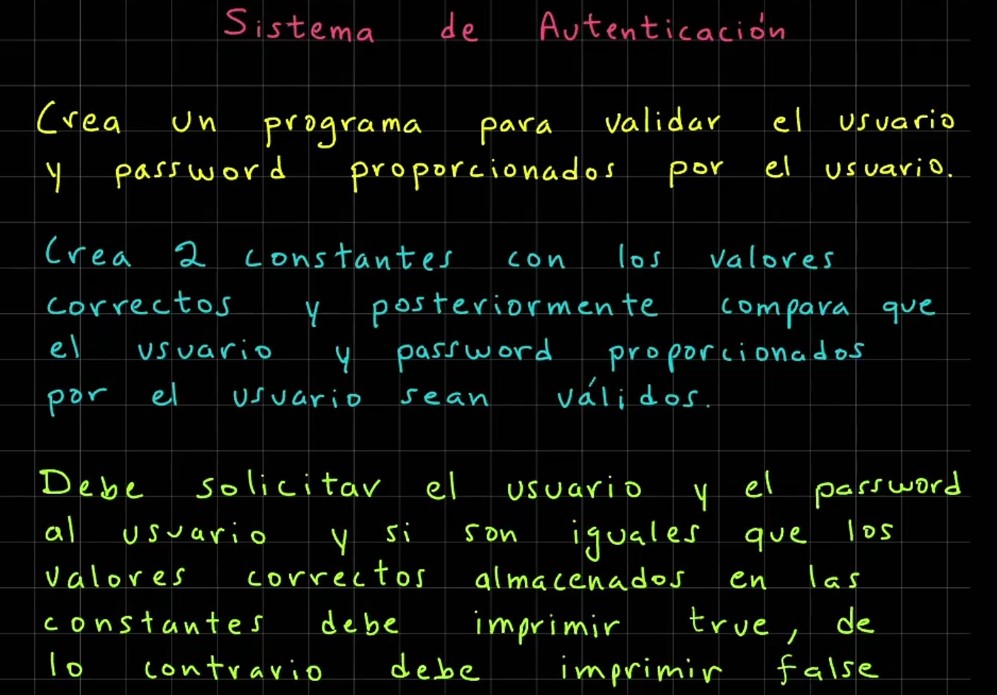 Sistema de Autenticación
Crea un programa para validar el usuario
y password proporcionados por el usuario.
Crea 2 constantes con los valores
correctos y posteriormente compara que
el usuario y password proporcionados
por el usuario sean válidos.
Debe solicitar el usuario y el password
al usuario y si son iguales que los
valores correctos almacenados en las
constantes debe imprimir true, de
lo contrario debe imprimir false